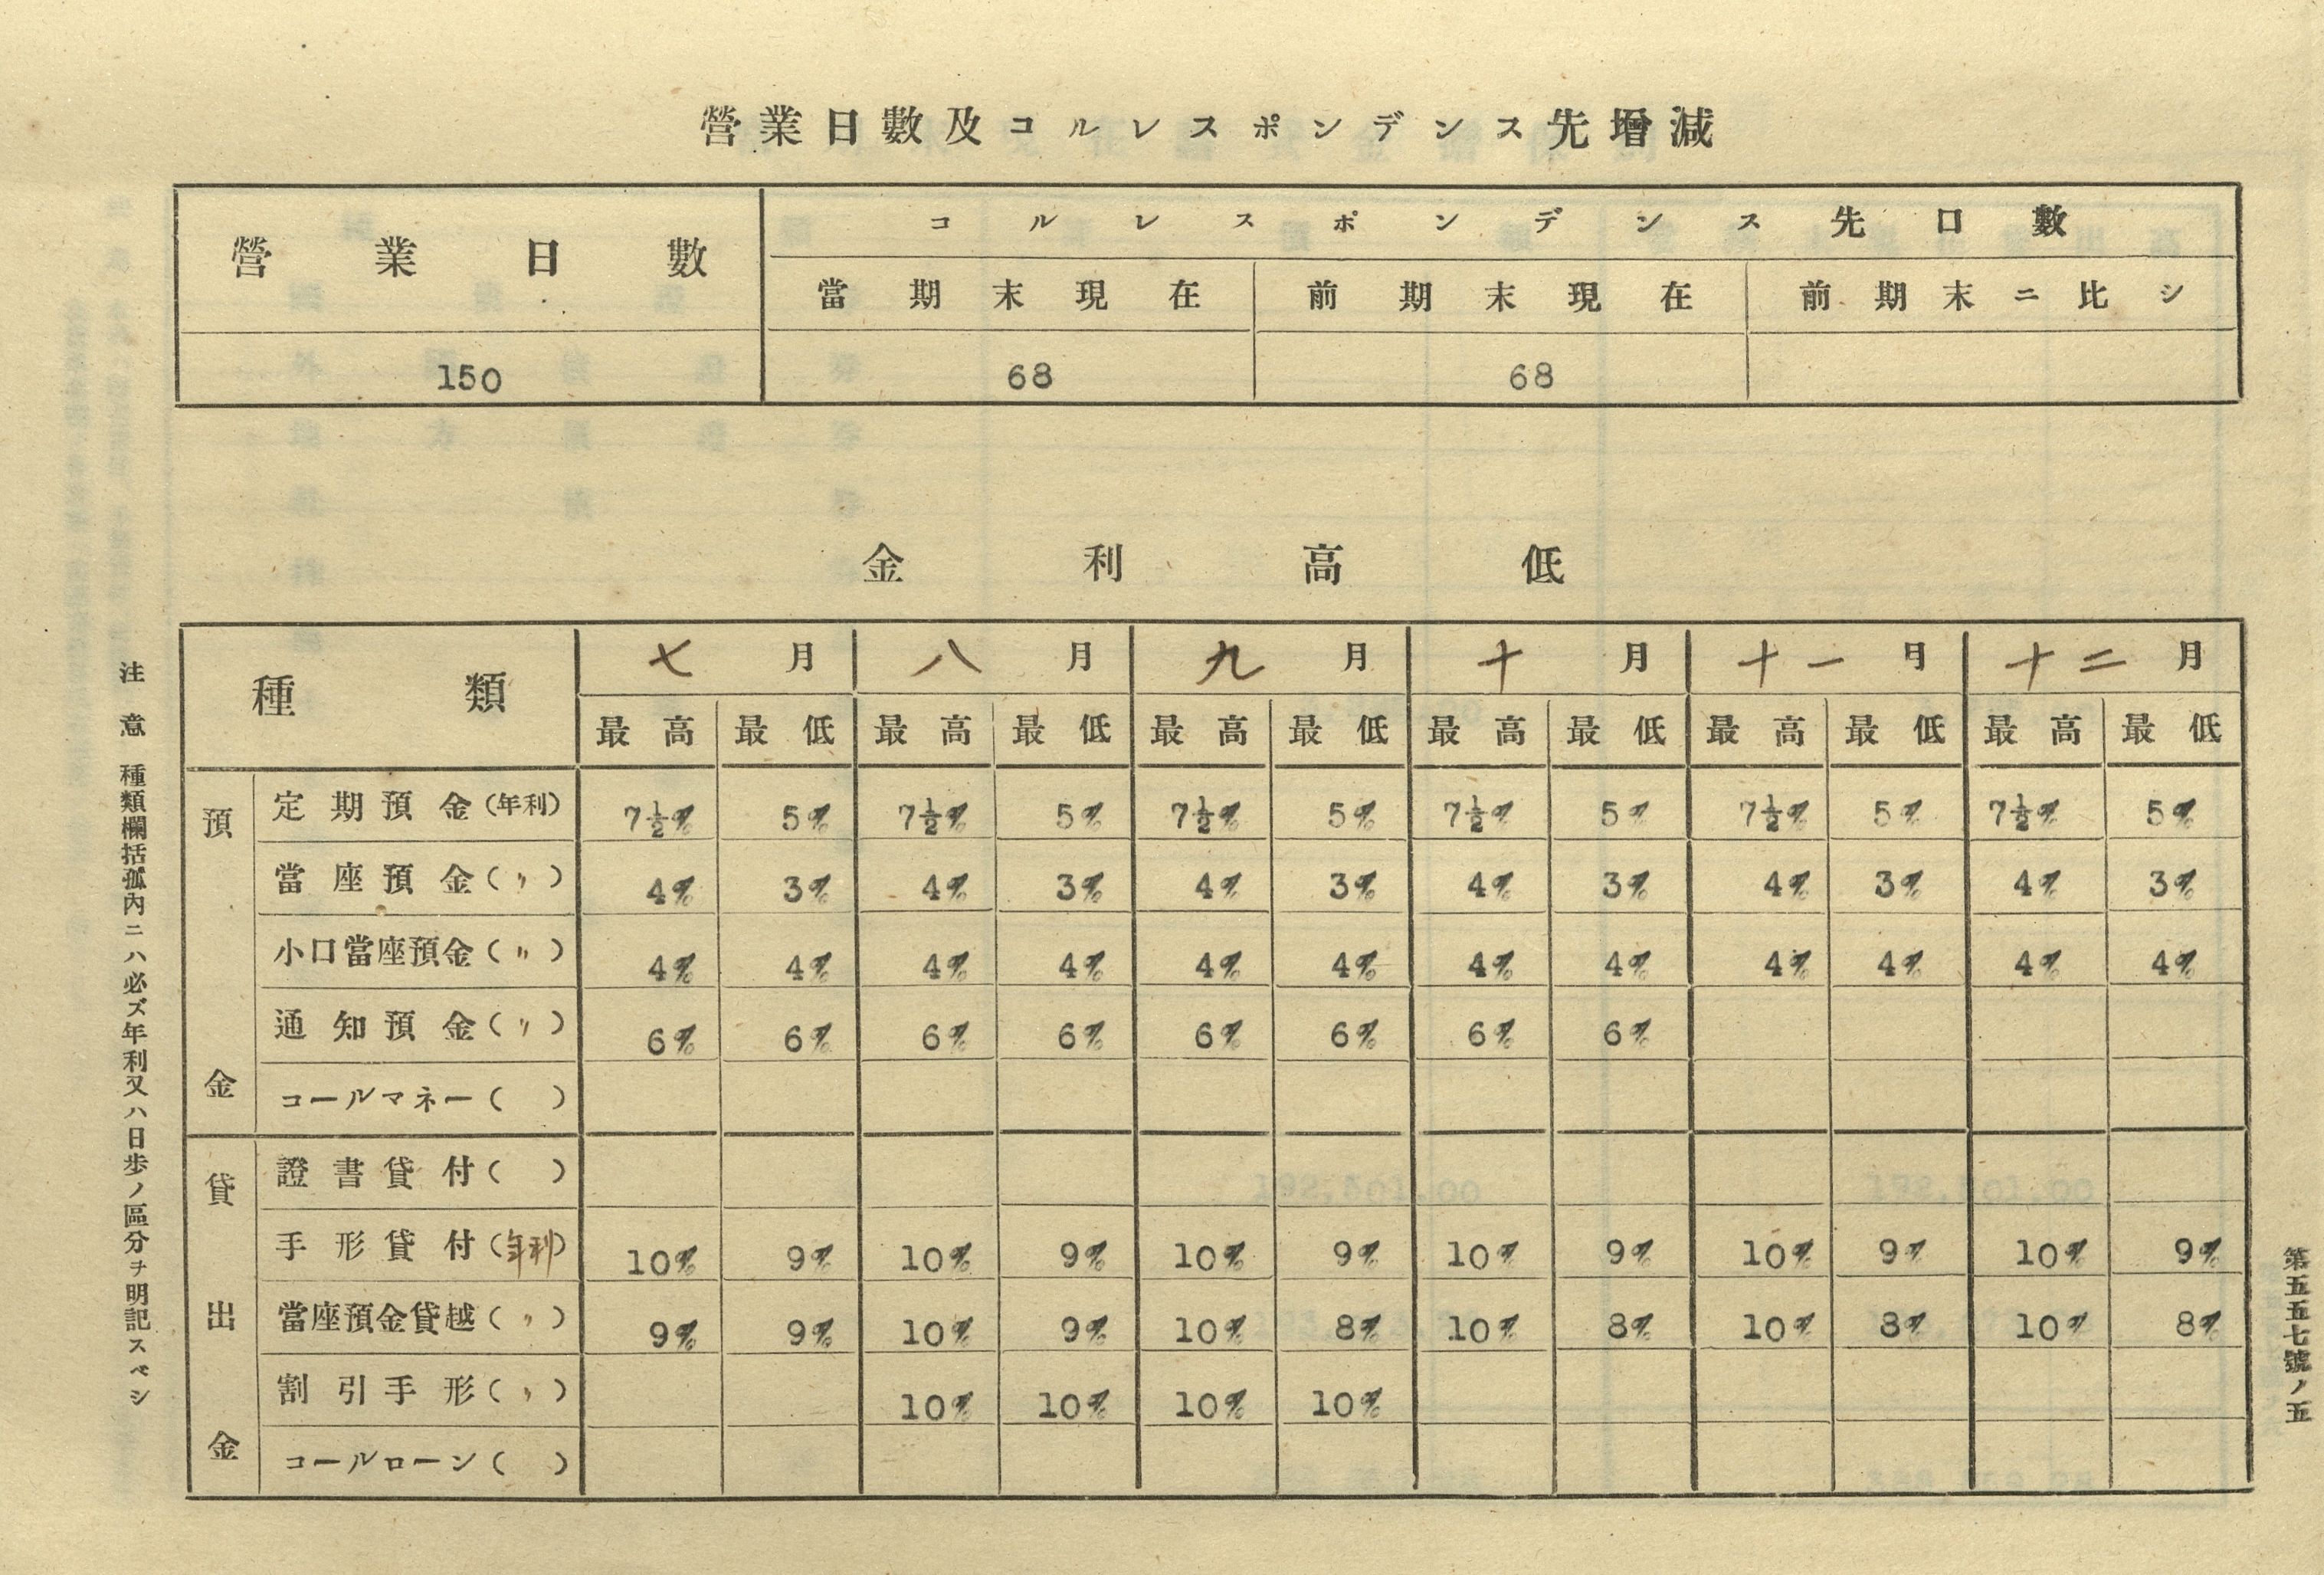 營業日數及コルレスポンデンス先增減
營業日數 コルレスポンデンス先口數
當期末現在 前期末現在 前期末ニ比シ
150 68 68
金利高低
種類 七月 八月 九月 十月 十一月 十二月
最高 最低 最高 最低 最高 最低 最高 最低 最高 最低 最高 最低
預金
定期預金(年利) 7½% 5% 7½% 5% 7½% 5% 7½% 5% 7½% 5% 7½% 5%
當座預金(〃) 4% 3% 4% 3% 4% 3% 4% 3% 4% 3% 4% 3%
小口當座預金(〃) 4% 4% 4% 4% 4% 4% 4% 4% 4% 4% 4% 4%
通知預金(〃) 6% 6% 6% 6% 6% 6% 6% 6%
コールマネー( )
貸出金
證書貸付( )
手形貸付(年利) 10% 9% 10% 9% 10% 9% 10% 9% 10% 9% 10% 9%
當座預金貸越(〃) 9% 9% 10% 9% 10% 8% 10% 8% 10% 8% 10% 8%
割引手形(〃) 10% 10% 10% 10%
コールローン( )
注意 種類欄括孤內ニハ必ズ年利又ハ日歩ノ區分ヲ明記スベシ
第五五七號ノ五